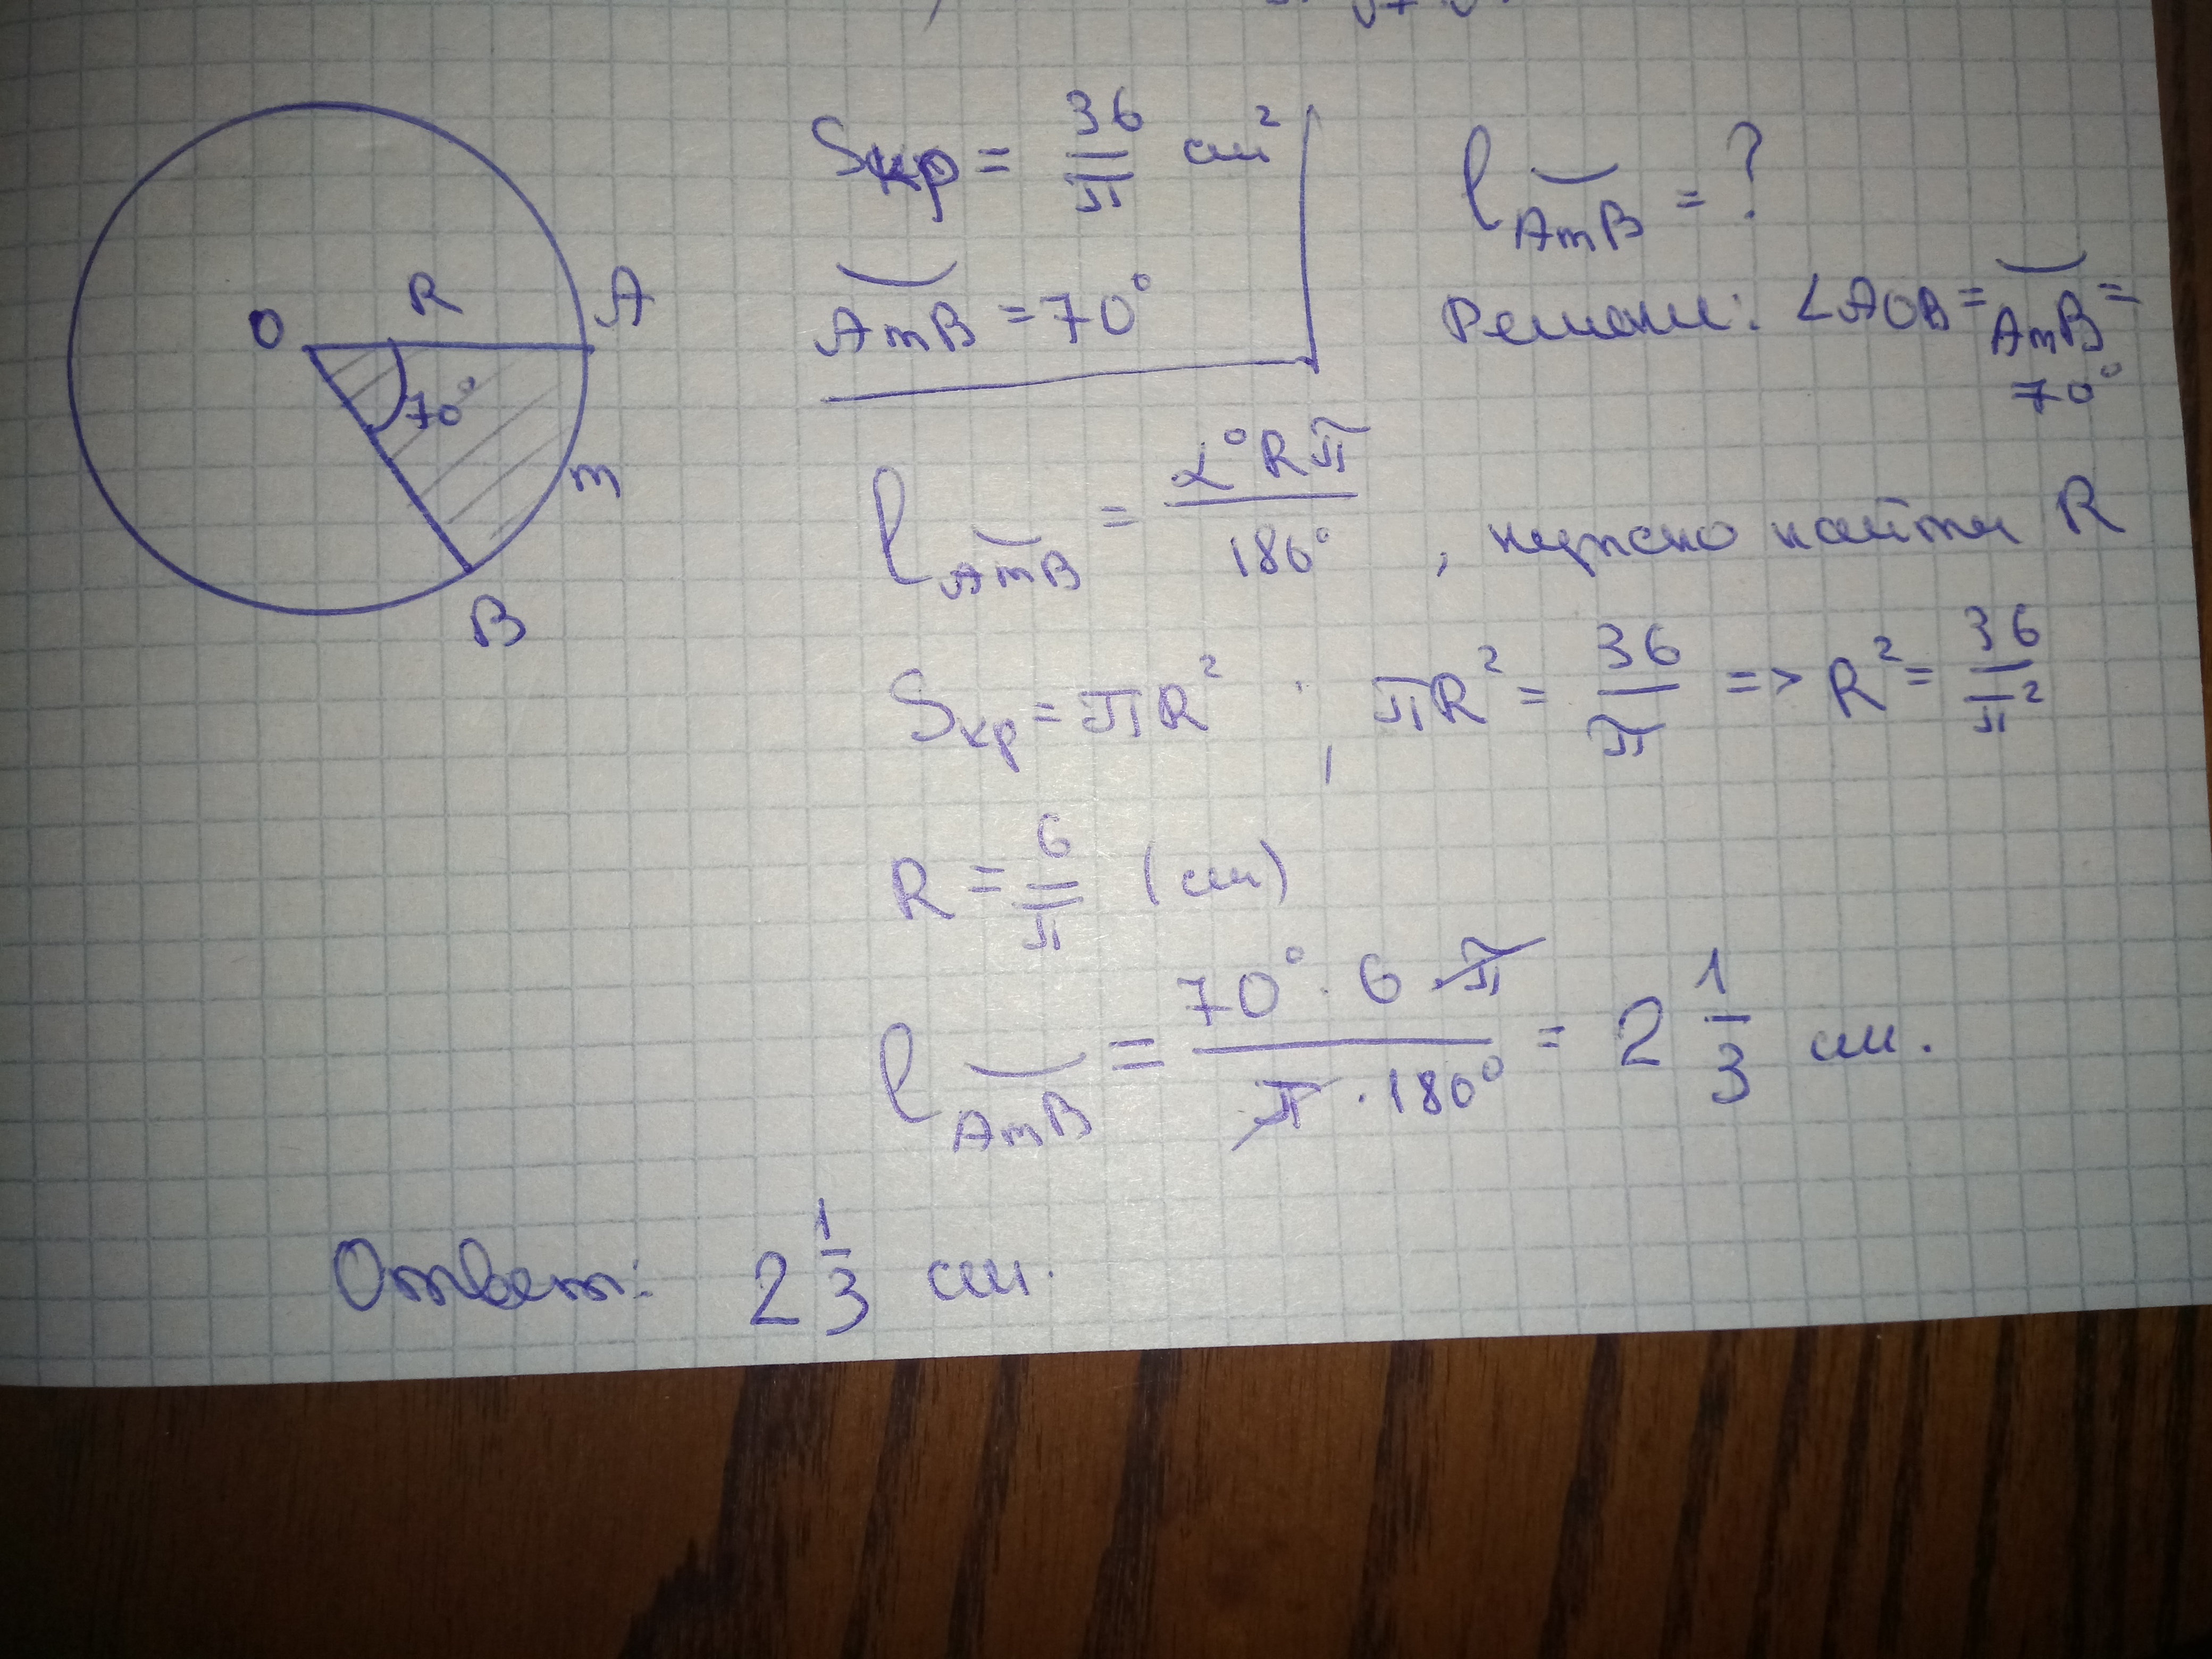 O R A
70°
m
B
Sкр = 36/π см²
AmB = 70°
l AmB = ?
Решение: ∠AOB = AmB =
70°
l AmB = α°Rπ/180° , нужно найти R
Sкр = πR² , πR² = 36/π => R² = 36/π²
R = 6/π (см)
l AmB = 70°·6·π/π·180° = 2 1/3 см.
Ответ: 2 1/3 см.